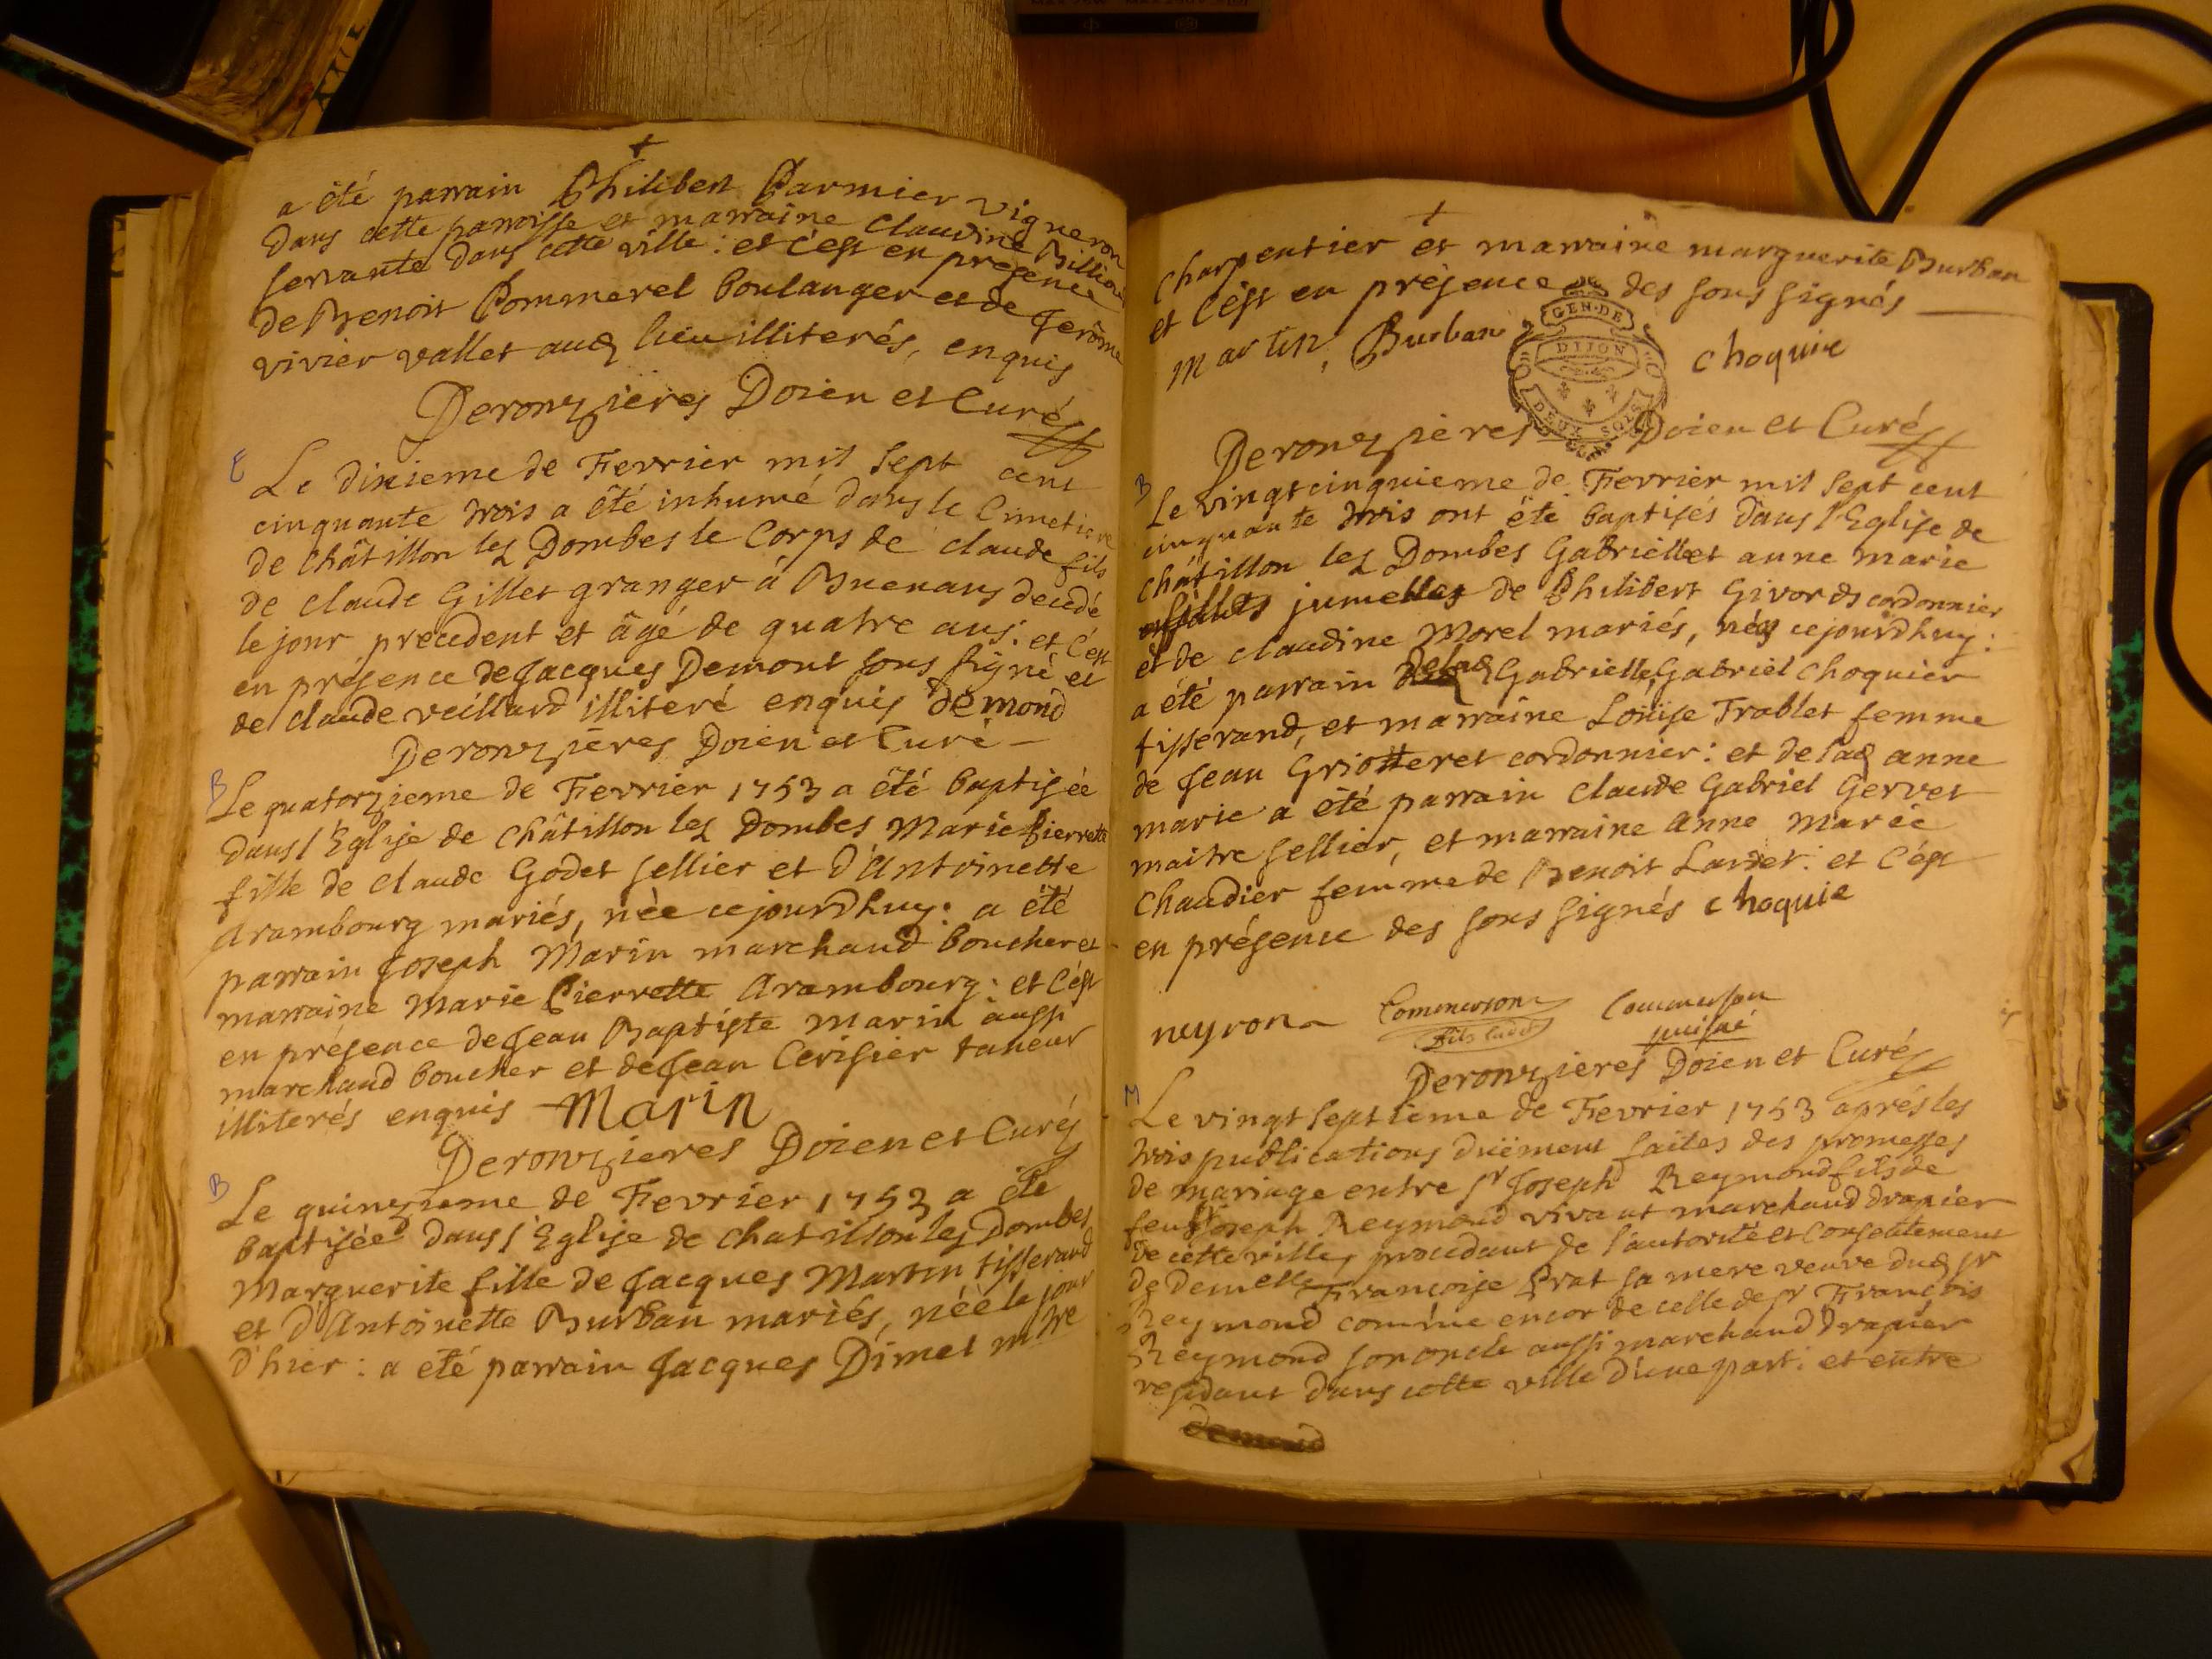 a été parrain Philibert Parmier vigneron
dans cette parroisse et marraine Claudine Billion
servante dans cette ville : et c'est en presence
de Benoit Pommerel boulanger et de Jerôme
vivier vallet audt lieu illiterés, enquis
Deronzieres Doien et Curé
E
Le dixieme de Fevrier mil sept cent
cinquante trois a été inhumé dans le Cimetiere
de Châtillon les Dombes le Corps de claude fils
de claude Gillet granger á Buenans decedé
le jour precedent et âgé de quatre ans : et c'est
en présence de Jacques Demont sous signé et
de claude veillard illiteré enquis demond
Deronzieres Doien et Curé
B
Le quatorzieme de Fevrier 1753 a été baptisée
dans l'Eglise de Châtillon les Dombes Marie Pierrette
fille de Claude Godet sellier et d'Antoinette
Arambourg mariés, née cejourdhuy : a été
parrain Joseph Marin marchand boucher et
marraine Marie Pierrette Arambourg : et c'est
en présence de Jean Baptiste Marin aussi
marchand boucher et de Jean Cerisier taneur
illiterés enquis Marin
Deronzieres Doien et Curé
B
Le quinzieme de Fevrier 1753 a été
baptisée dans l'Eglise de Chatillon les Dombes
Marguerite fille de Jacques Martin tisserand
et d'Antoinette Burban mariés, née le jour
d'hier : a été parrain Jacques Dimet mtre
charpentier et marraine marguerite Burban
et c'est en présence des sous signés
martin, Burban choquie
GEN. DE DIJON
DEUX SOLS
Deronzieres Doien et Curé
B
Le vingtcinquieme de Fevrier mil sept cent
cinquante trois ont été baptisés dans l'Eglise de
Châtillon les Dombes Gabrielle et anne marie
jumelles de Philibert Givord cordonnier
et de claudine Morel mariés, nés cejourdhuy :
a été parrain de lad Gabrielle Gabriel Choquier
tisserand, et marraine Loüise Trablet femme
de Jean Griotteret cordonnier : et de lad anne
marie a été parrain claude Gabriel Gervet
maitre sellier, et marraine Anne Marie
Chaudier femme de Benoit Larret : et c'est
en présence des sous signés choquie
neyron Commerson Commerson
fils cadet puisné
Deronzieres Doien et Curé
M
Le vingt septieme de Fevrier 1753 aprés les
trois publications düement faites des promesses
de mariage entre sr Joseph Reymond fils de
feu sr Joseph Reymond vivant marchand drapier
de cette ville, procedant de l'autorité et consentement
de Demelle Françoise Prat sa mere veuve dud sr
Reymond comme encor de celle de sr François
Reymond son oncle aussi marchand drapier
residant dans cette ville d'une part : et entre